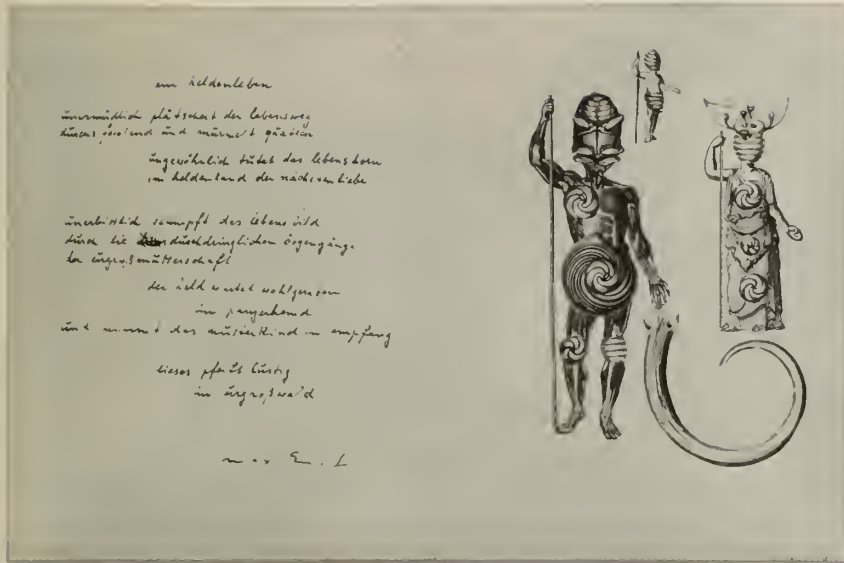 ein heldenleben
unermüdlich plätschert der lebensweg
durchs und murmelt
ungewöhnlich tutet das lebenshorn
im heldenland der nächstenliebe
unerbittlich stampft das lebensbild
durch die
der urgroßmütterschaft
der held wartet wohlgeraten
im panzerhemd
und nimmt das musterkind in empfang
dieses pfeift lustig
im urgroßwald
max